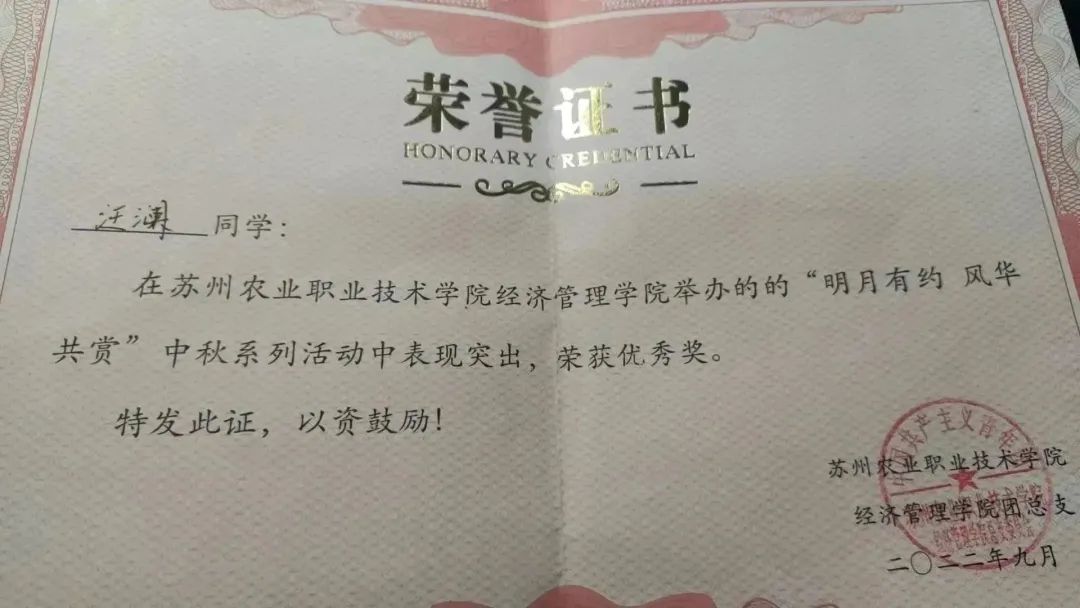 荣誉证书
HONORARY CREDENTIAL
汪澜 同学：
在苏州农业职业技术学院经济管理学院举办的的“明月有约 风华
共赏”中秋系列活动中表现突出，荣获优秀奖。
特发此证，以资鼓励！
苏州农业职业技术学院
经济管理学院团总支
二〇二二年九月
中国共产主义青年